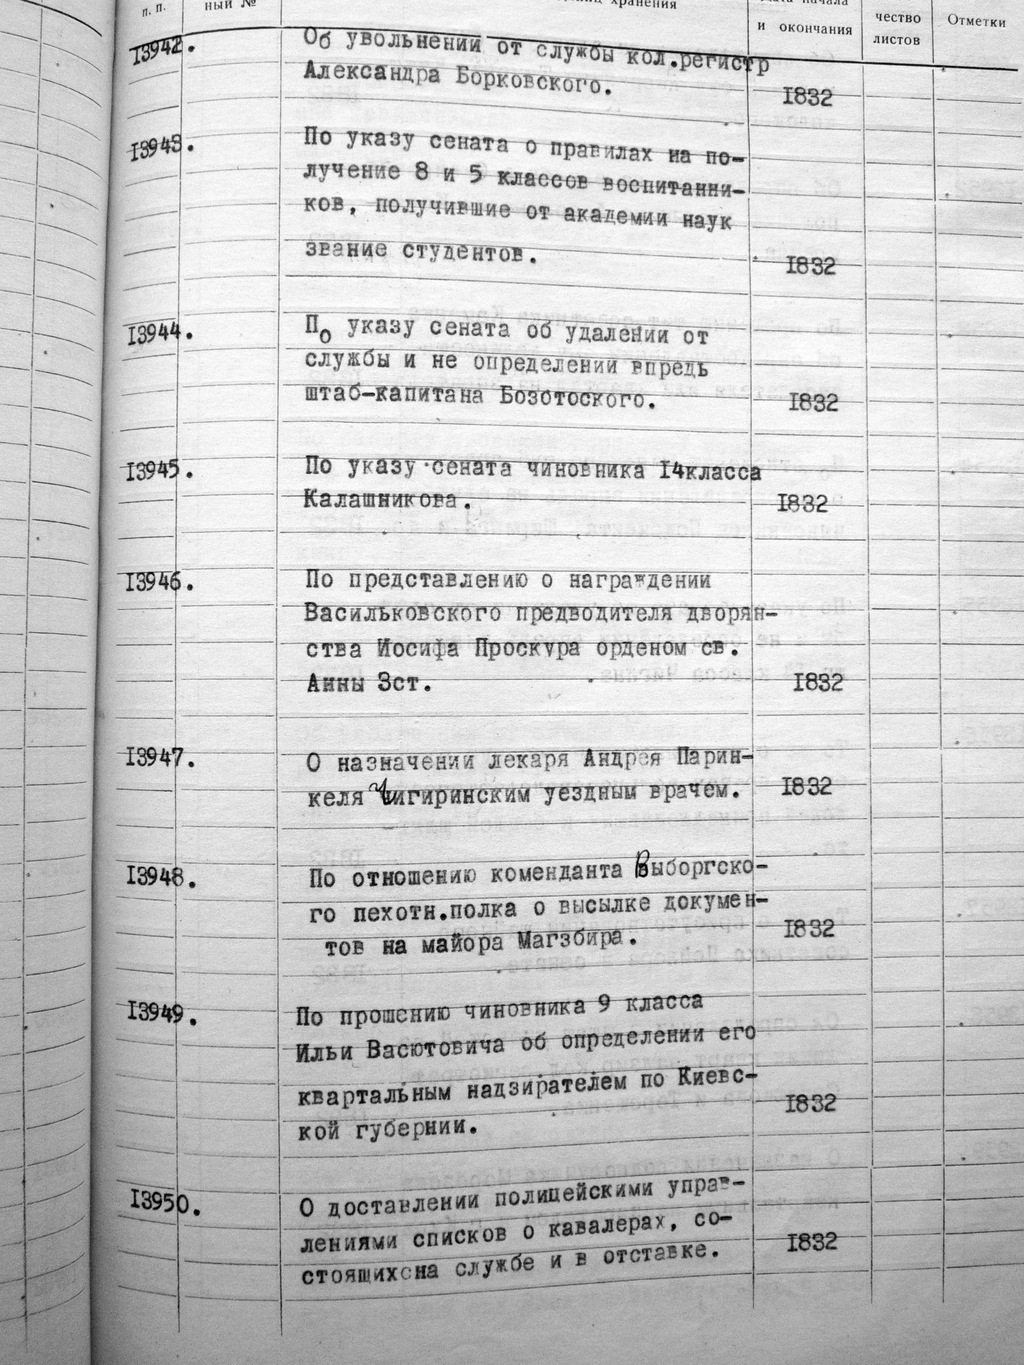 п. п.
ный №
хранения
и окончания
чество
листов
Отметки
13942.
Об увольнении от службы кол.регистр
Александра Борковского.
1832
13943.
По указу сената о правилах на по-
лучение 8 и 5 классов воспитанни-
ков, получившие от академии наук
звание студентов.
1832
13944.
По указу сената об удалении от
службы и не определении впредь
штаб-капитана Бозотоского.
1832
13945.
По указу сената чиновника 14класса
Калашникова.
1832
13946.
По представлению о награждении
Васильковского предводителя дворян-
ства Иосифа Проскура орденом св.
Анны 3ст.
1832
13947.
О назначении лекаря Андрея Парин-
келя Чигиринским уездным врачем.
1832
13948.
По отношению коменданта Выборгско-
го пехотн.полка о высылке докумен-
тов на майора Магзбира.
1832
13949.
По прошению чиновника 9 класса
Ильи Васютовича об определении его
квартальным надзирателем по Киевс-
кой губернии.
1832
13950.
О доставлении полицейскими управ-
лениями списков о кавалерах, со-
стоящихсна службе и в отставке.
1832